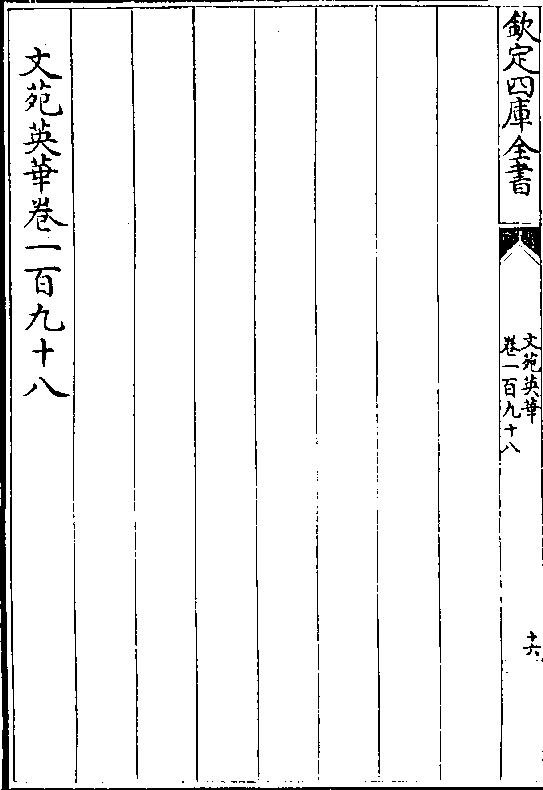 欽定四庫全書
文苑英華
卷一百九十八
十六
文苑英華卷一百九十八